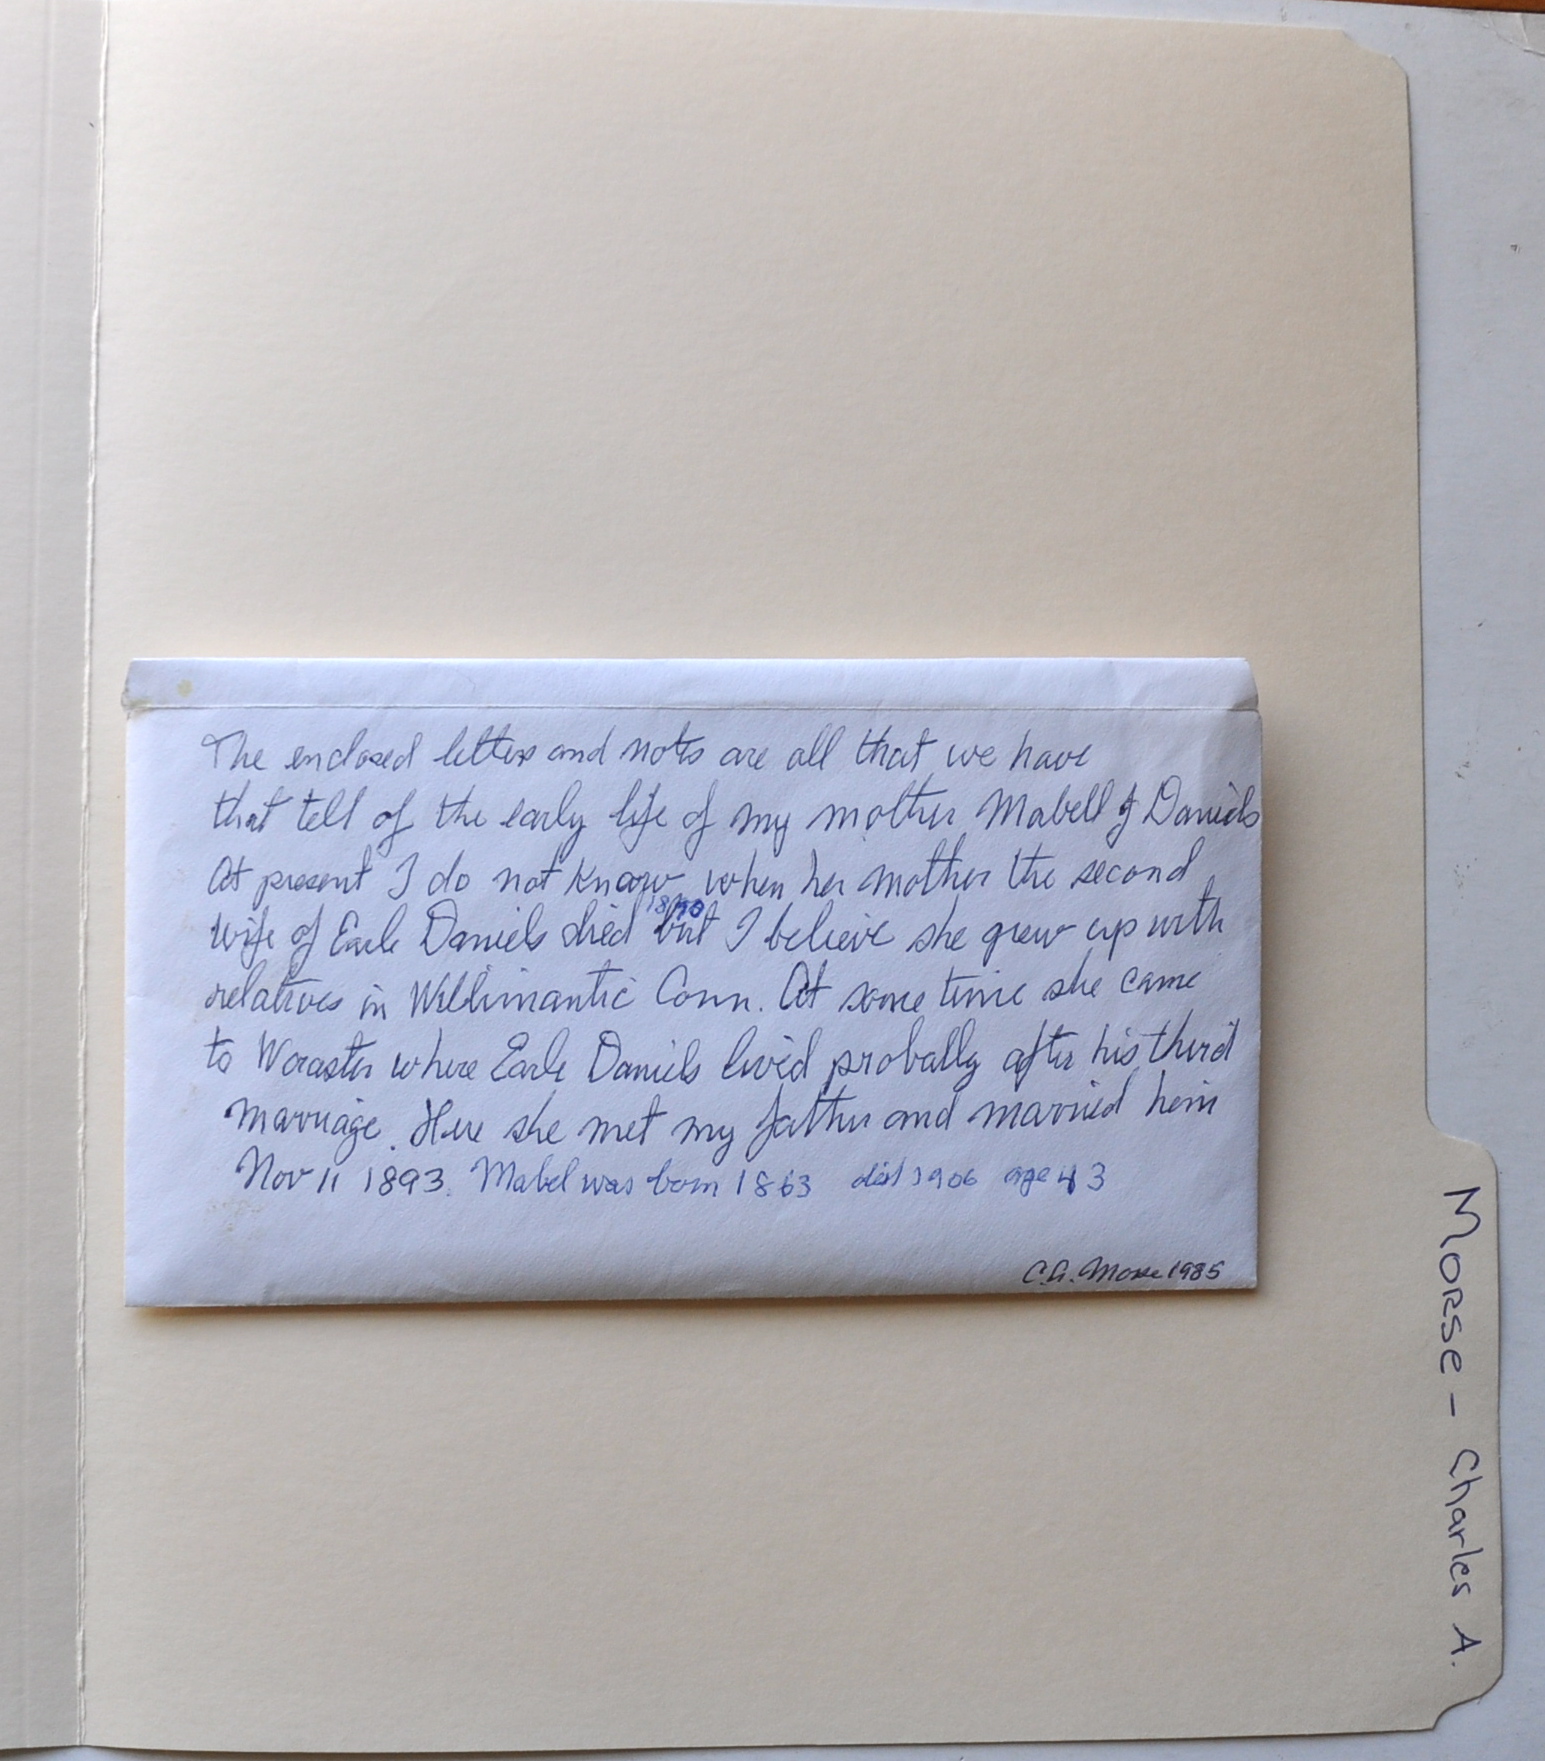 The enclosed letters and nots are all that we have
that tell of the early life of my mother Mabell J Daniels
At present I do not know when her mother the second
1870
wife of Earle Daniels died but I believe she grew up with
relatives in Willimantic Conn. At some time she came
to Worcester where Earle Daniels lived probally after his third
marriage. Here she met my father and married him
Nov 11 1893. Mabel was born 1863 died 1906 age 43
C.A. Morse 1985
MORSE - Charles A.